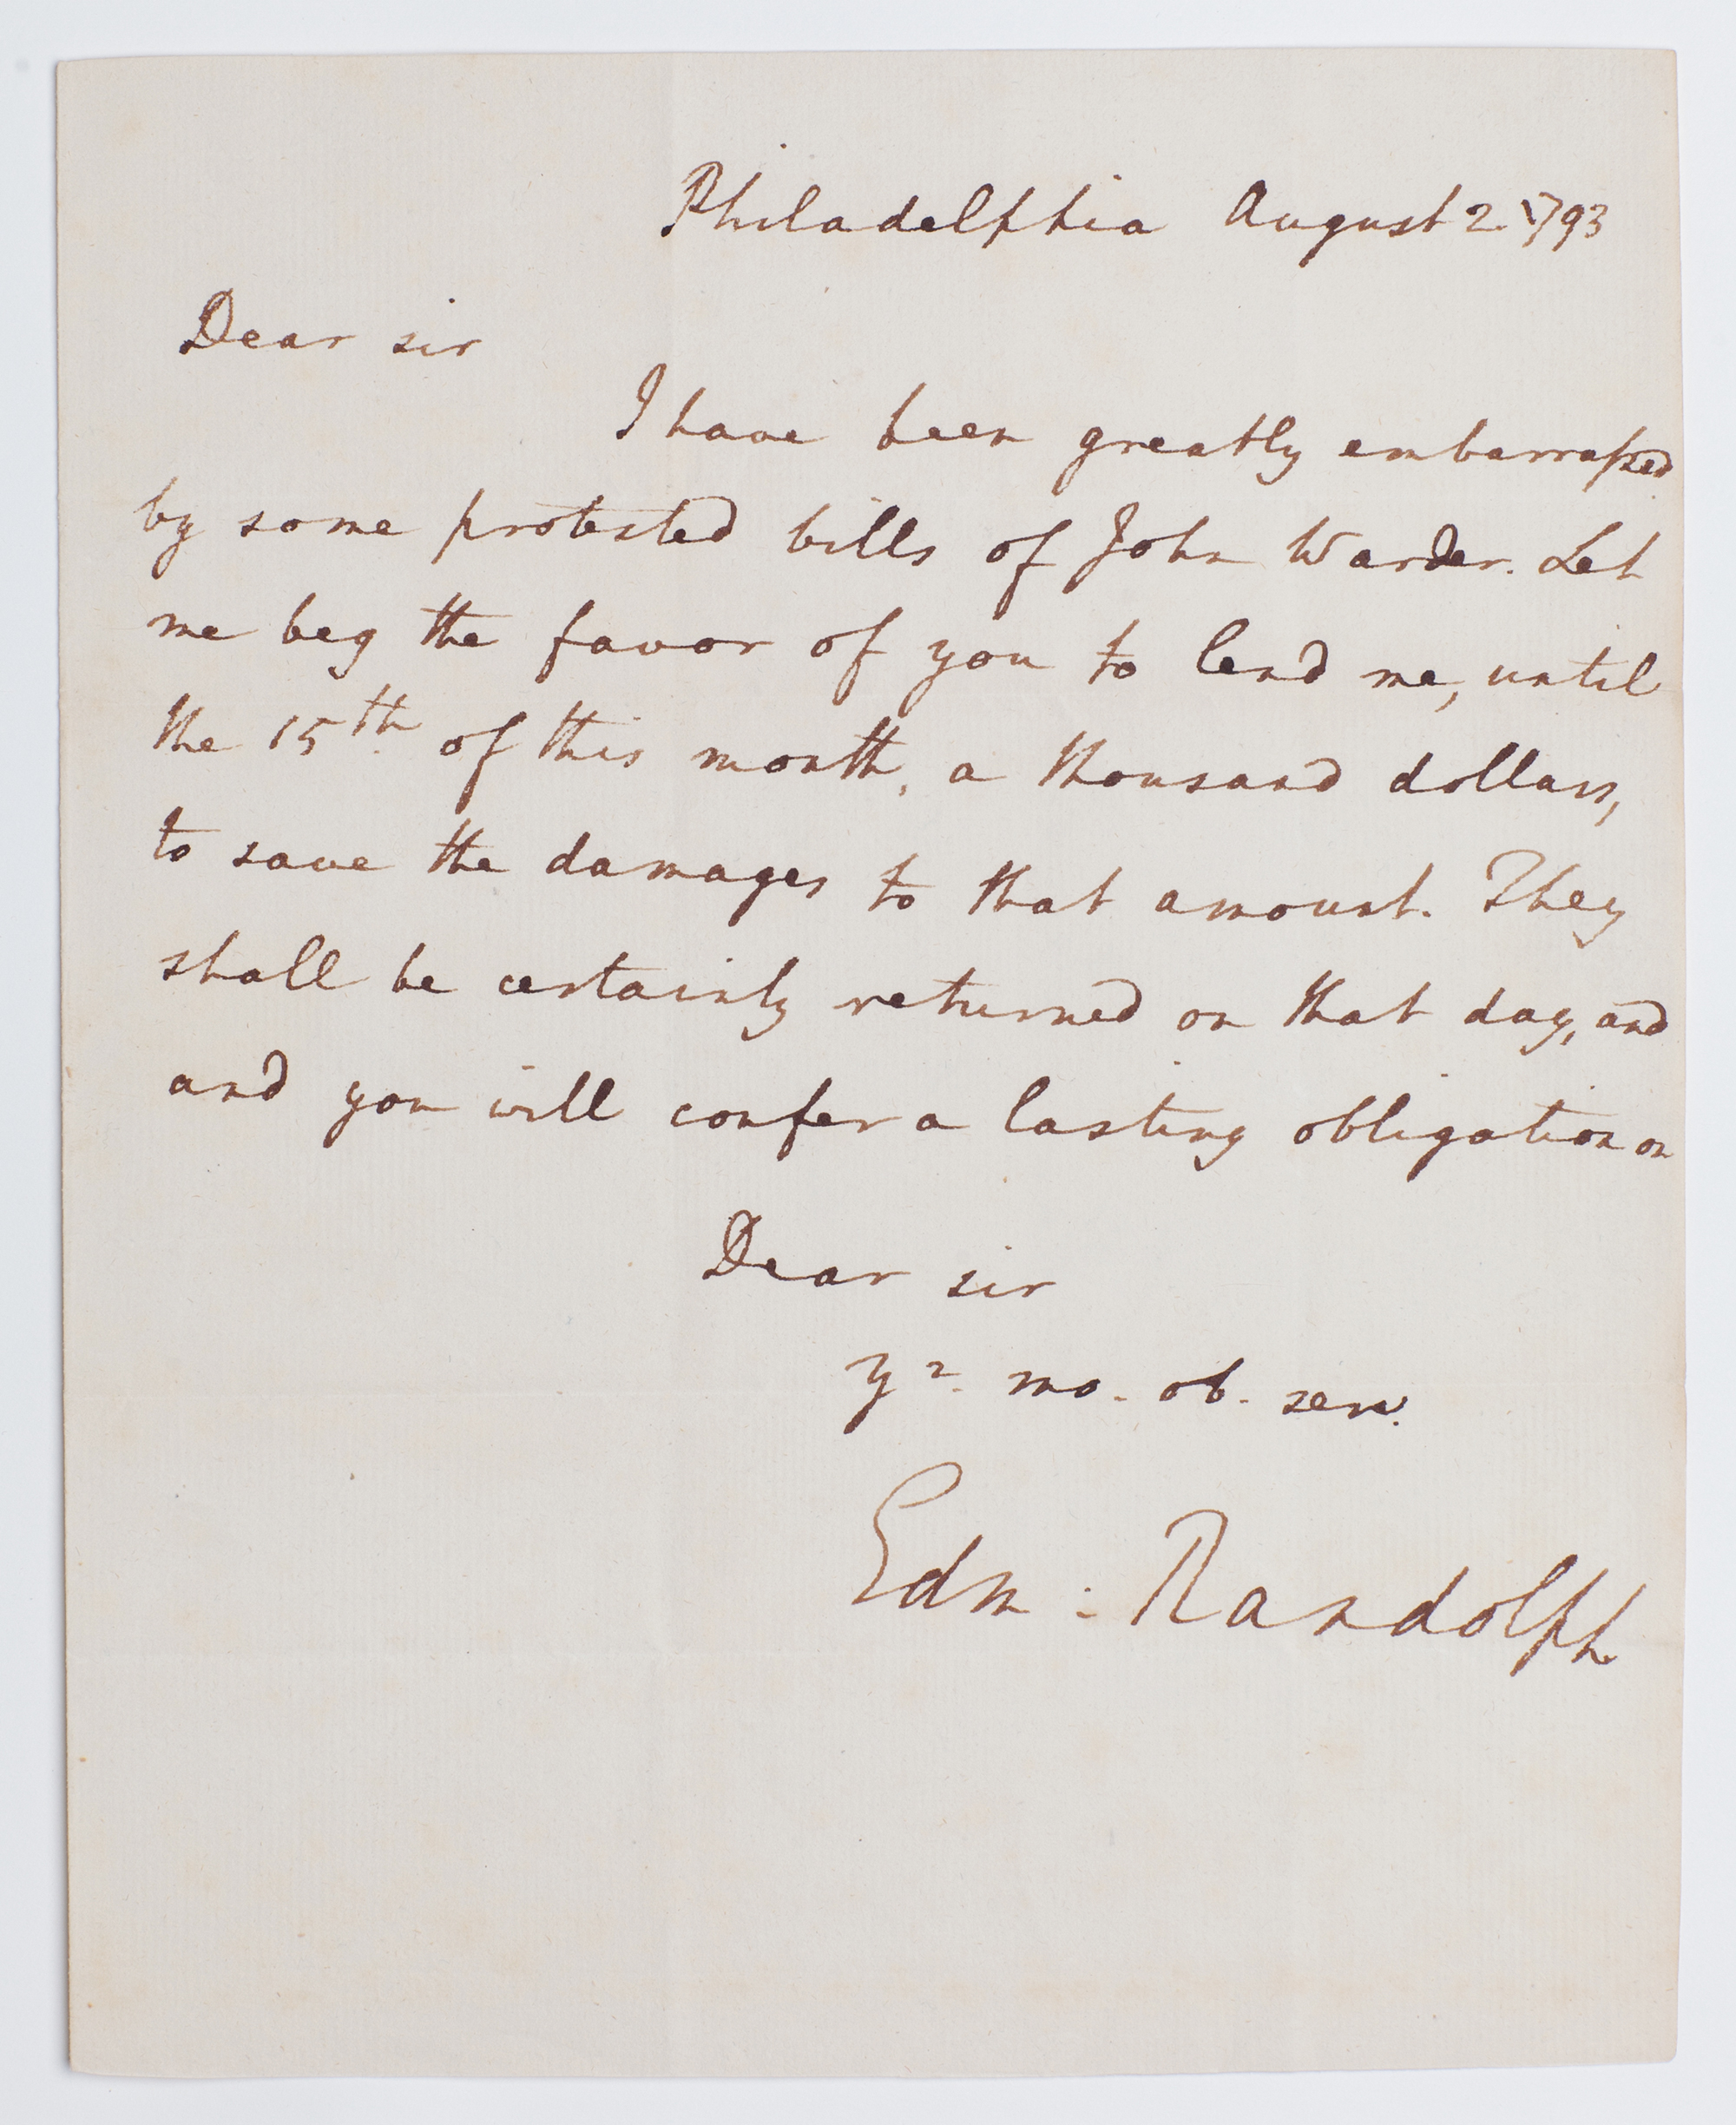 Philadelphia August 2. 1793
Dear sir
I have been greatly embarrassed
by some protested bills of John Warder. Let
me beg the favor of you to lend me, until
the 15th. of this month, a thousand dollars,
to save the damages to that amount. They
shall be certainly returned on that day, and
and you will confer a lasting obligation on
Dear sir
yr. mo. ob. serv.
Edm: Randolph.